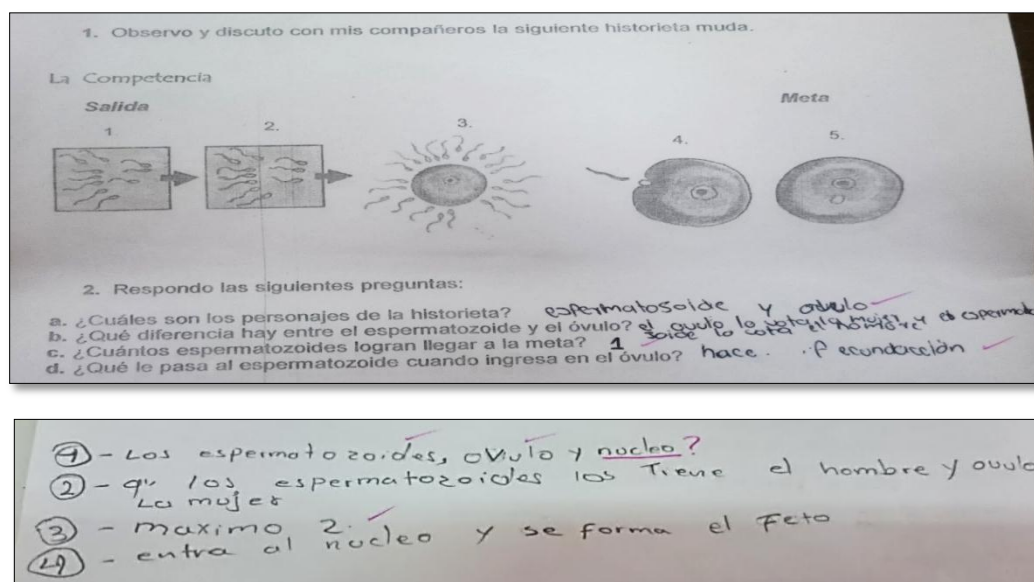 1. Observo y discuto con mis compañeros la siguiente historieta muda.
La Competencia
Salida
Meta
1
2.
3.
4.
5.
2. Respondo las siguientes preguntas:
a. ¿Cuáles son los personajes de la historieta? espermatosoide y óvulo
b. ¿Qué diferencia hay entre el espermatozoide y el óvulo? el ovulo lo y el espermato
soide lo
c. ¿Cuántos espermatozoides logran llegar a la meta? 1
d. ¿Qué le pasa al espermatozoide cuando ingresa en el óvulo? hace. fecundacción
1 - Los espermotozoides, oVulo y nucleo?
2 - q' los espermatozoides los Tiene el hombre y ovulo
La mujer
3 - maximo 2.
4 - entra al nucleo y se forma el Feto